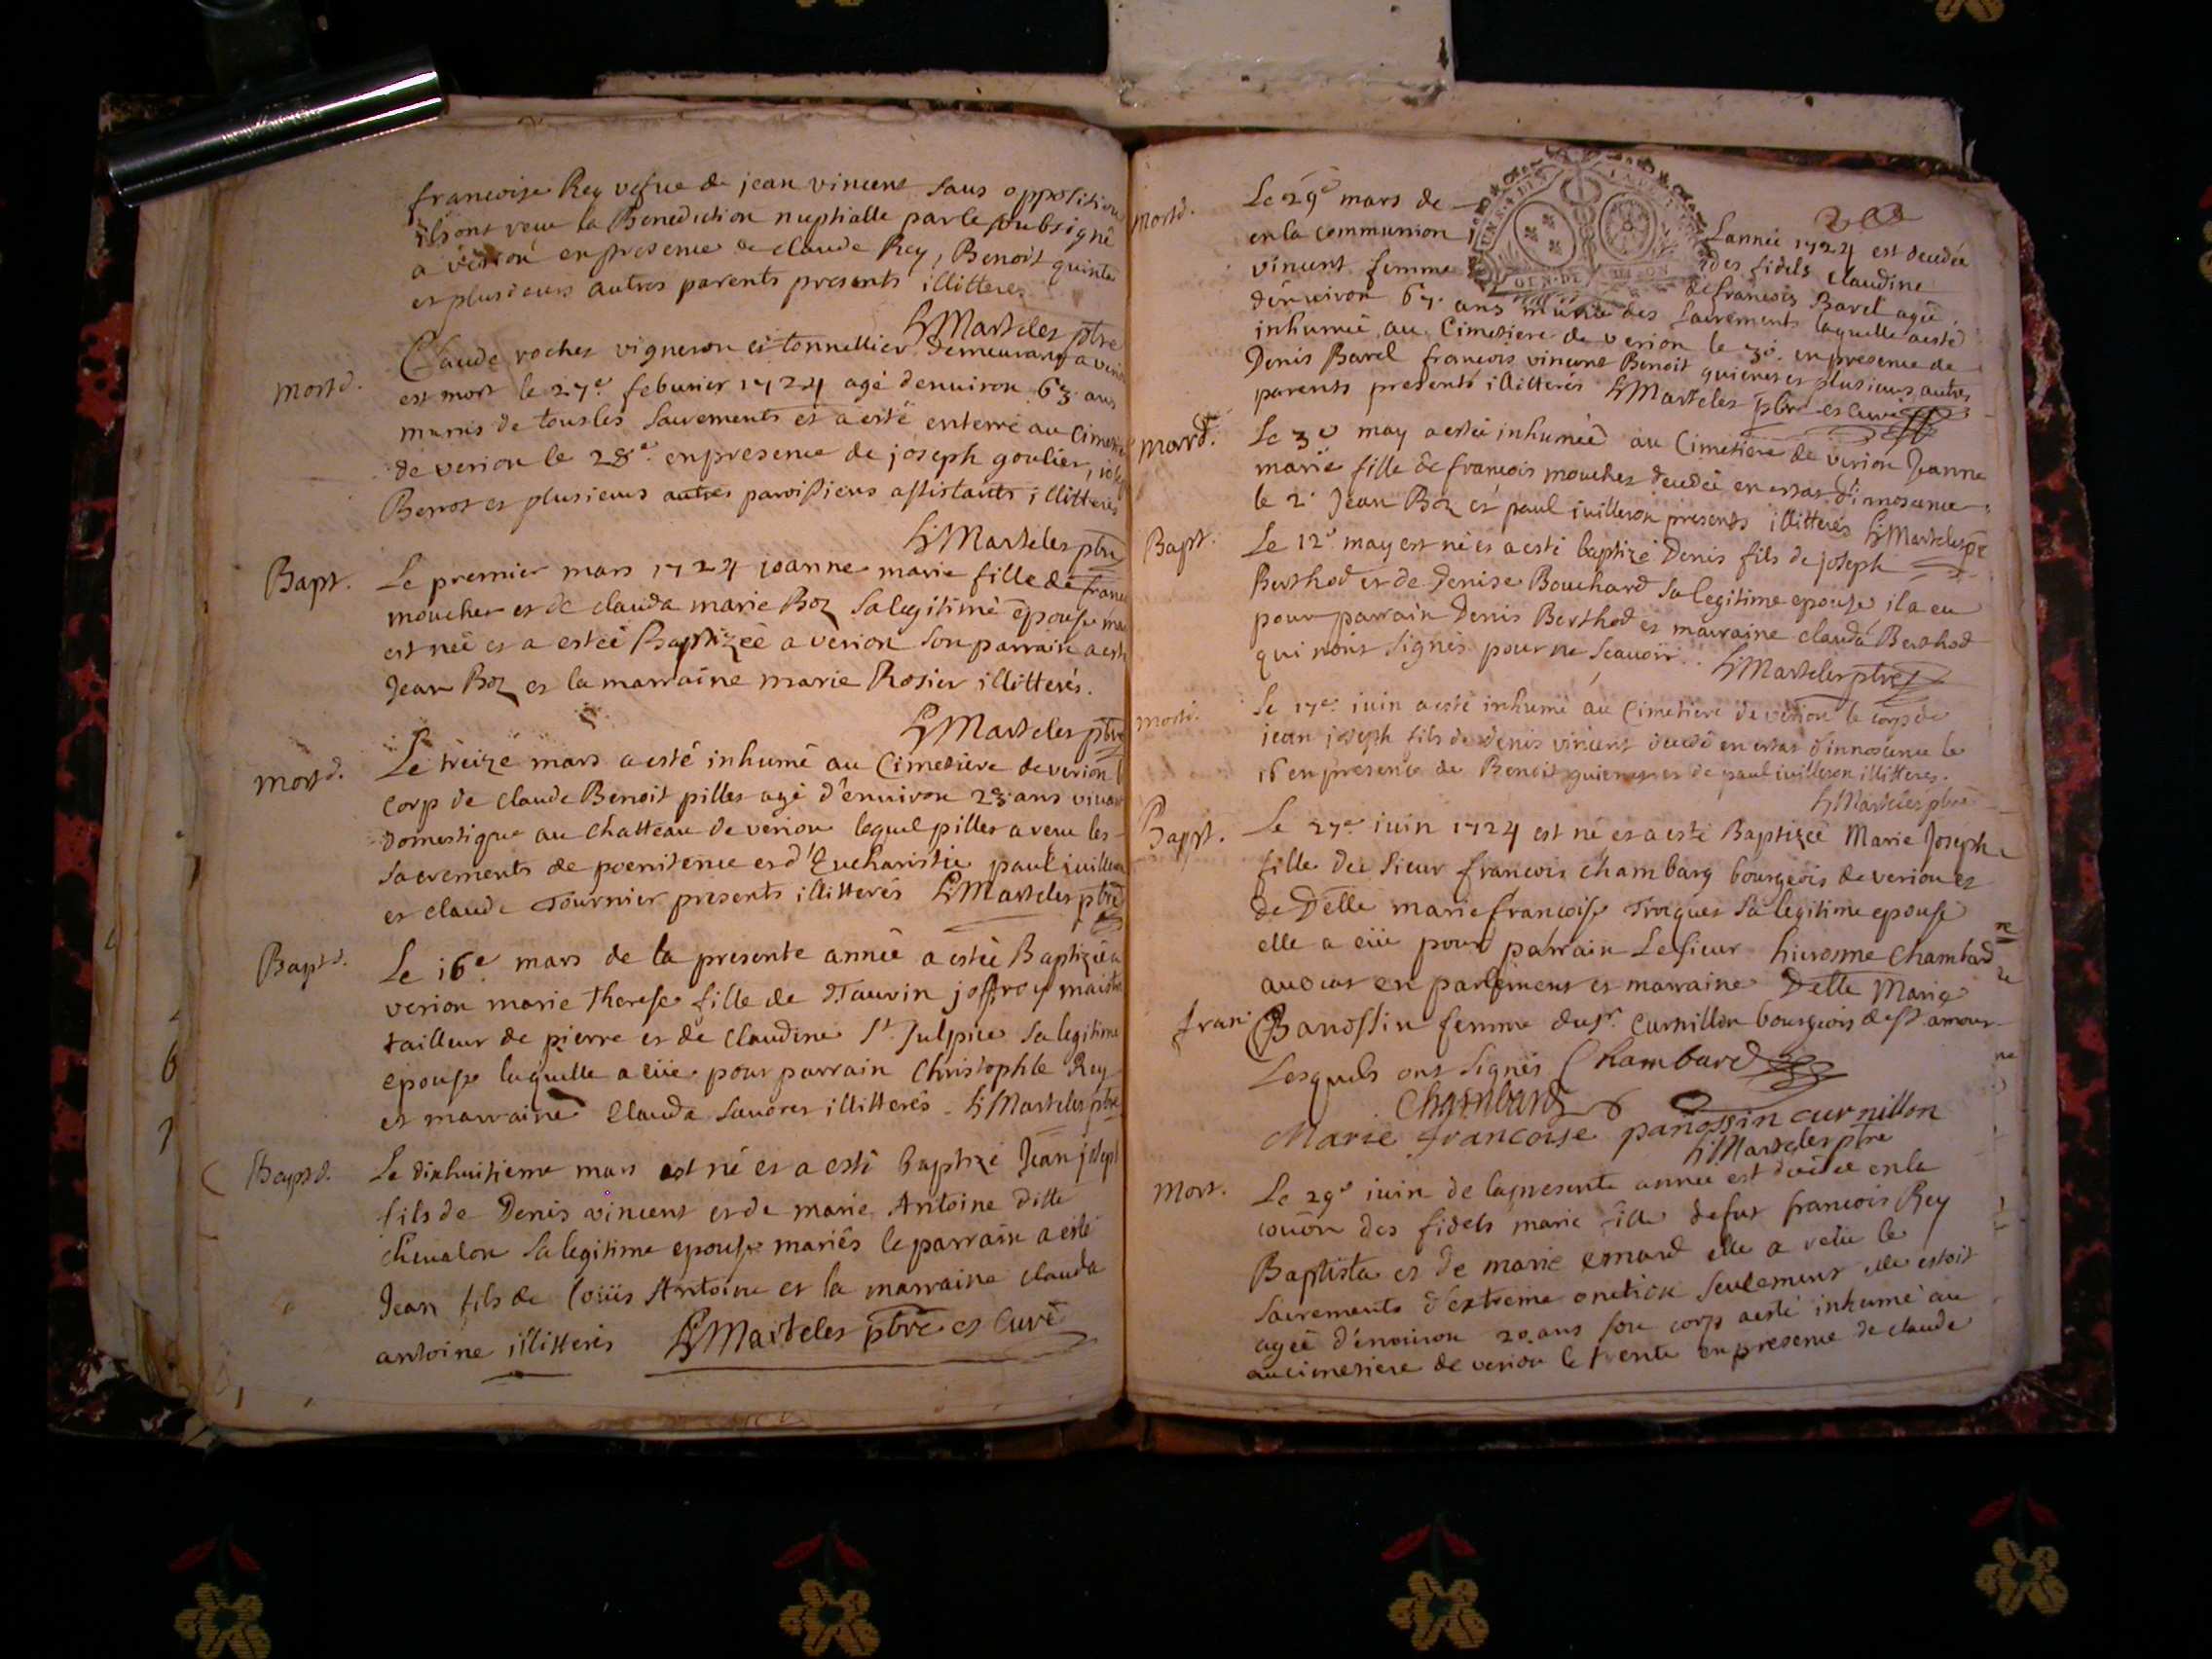 francoise Rey vefue de jean vincent sans opposition
ils ont receu la Benediction nuptialle par le soubsigné
a verion en presence de claude Rey, Benoit
et plusieurs autres parents presents illitteres
Martelet ptre
mort
Claude rochet vigneron et tonnellier demeurant a verion
est mort le 27e feburier 1724 agé denuiron 63 ans
munis de tous les sacrements et a esté enterré au Cimetiere
de verion le 28e en presence de joseph goulier,
et plusieurs autres paroissiens assistants illitteres
Martelet ptre
Bapt.
Le premier mars 1724 jeanne marie fille de francois
mouchet et de clauda marie Boz sa legitime epouse
est née et a esteé Baptizeé a verion son parrain a esté
Jean Boz et la marraine marie Rosier illitterés.
Martelet ptre
mort
Le treize mars a esté inhumé au Cimetiere de verion le
corp de claude Benoit pillet agé d'enuiron 23 ans viuant
domestique au chatteau de verion lequel pillet a receu les
sacrements de poenitence et d'Eucharistie paul juilleron
et claude Tournier presents illitterés Martelet ptre
Bapt.
Le 16e mars de la presente année a esteé Baptizeé a
verion marie therese fille de Tauvin joffroy maistre
tailleur de pierre et de claudine St Sulpice sa legitime
epouse laquelle a eüe pour parrain Christophle Rey
et marraine Clauda illitterés. Martelet ptre
Bapt.
Le dixhuitieme mars est né et a esté baptizé Jean joseph
fils de Denis vincent et de marie Antoine ditte
chevalon sa legitime epouse mariés le parrain a esté
Jean fils de loüis Antoine et la marraine clauda
antoine illitterés Martelet ptre et Curé
mort
Le 29e mars de l'année 1724 est decedée
en la communion des fidels Claudine
vincent femme de francois Barel agée
d'enuiron 67 ans munie des sacrements laquelle a esté
inhumée au Cimetiere de verion le 30 en presence de
Denis Barel francois vincent Benoit et plusieurs autres
parents presents illitterés Martelet ptre et curé
mort
Le 3e may a esteé inhumeé au Cimetiere de verion Jeanne
marie fille de francois mouchet decedeé en estat d'innocence
le 2. Jean Boz et paul juilleron presents illitterés Martelet ptre
Bapt.
Le 12e may est né et a esté baptizé Denis fils de joseph
Berthod et de Denise Bouchard sa legitime epouse, il a eu
pour parrain Denis Berthod et marraine clauda Berthod
qui n'ont signés pour ne scauoir. Martelet ptre
mort
Le 17e juin a esté inhumé au Cimetiere de verion le corp de
jean joseph fils de denis vincent decedé en estat d'innocence le
16 en presence de Benoit et de paul juilleron illitteres.
Martelet ptre
Bapt.
Le 27e juin 1724 est né et a esté Baptizeé Marie Joseph
fille du sieur francois chambard bourgeois de verion et
de Delle marie francoise sa legitime epouse
elle a eüe pour parrain Le sieur hierosme Chambard
auocat en parlement et marraine Delle Marie
fran Banossin femme du sr. Curnillon bourgeois de st amour
Lesquels ont signés Chambard
Chambard
Marie francoise panossin curnillon
Martelet ptre
Mort.
Le 29e juin de la presente année est decedeé en la
des fidels marie fille de fut francois Rey
Baptista et de marie emard elle a receu le
sacrements d'extreme onction seulement elle estoit
ageé d'enuiron 20 ans son corp a esté inhumé au
au cimetiere de verion le trente en presence de claude